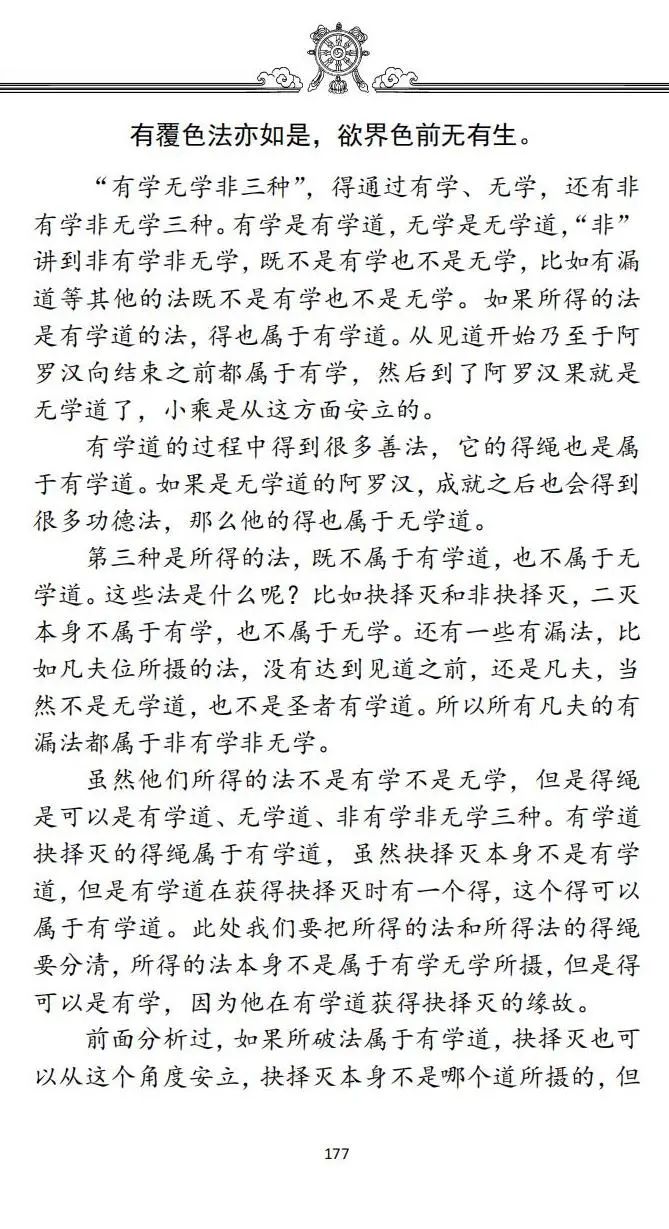 有覆色法亦如是，欲界色前无有生。
“有学无学非三种”，得通过有学、无学，还有非
有学非无学三种。有学是有学道，无学是无学道，“非”
讲到非有学非无学，既不是有学也不是无学，比如有漏
道等其他的法既不是有学也不是无学。如果所得的法
是有学道的法，得也属于有学道。从见道开始乃至于阿
罗汉向结束之前都属于有学，然后到了阿罗汉果就是
无学道了，小乘是从这方面安立的。
有学道的过程中得到很多善法，它的得绳也是属
于有学道。如果是无学道的阿罗汉，成就之后也会得到
很多功德法，那么他的得也属于无学道。
第三种是所得的法，既不属于有学道，也不属于无
学道。这些法是什么呢？比如抉择灭和非抉择灭，二灭
本身不属于有学，也不属于无学。还有一些有漏法，比
如凡夫位所摄的法，没有达到见道之前，还是凡夫，当
然不是无学道，也不是圣者有学道。所以所有凡夫的有
漏法都属于非有学非无学。
虽然他们所得的法不是有学不是无学，但是得绳
是可以是有学道、无学道、非有学非无学三种。有学道
抉择灭的得绳属于有学道，虽然抉择灭本身不是有学
道，但是有学道在获得抉择灭时有一个得，这个得可以
属于有学道。此处我们要把所得的法和所得法的得绳
要分清，所得的法本身不是属于有学无学所摄，但是得
可以是有学，因为他在有学道获得抉择灭的缘故。
前面分析过，如果所破法属于有学道，抉择灭也可
以从这个角度安立，抉择灭本身不是哪个道所摄的，但
177